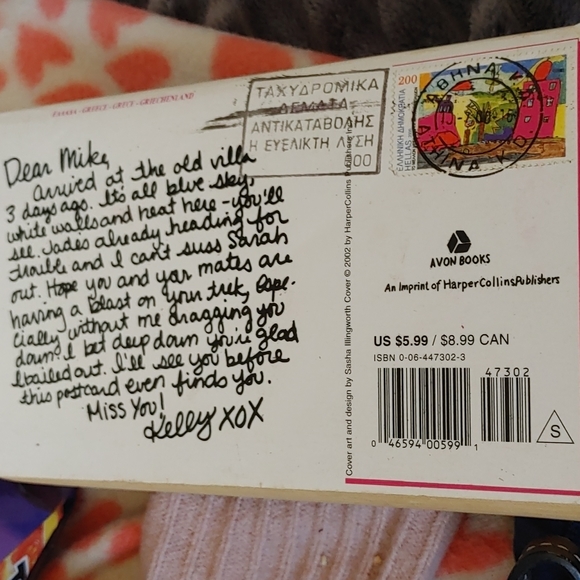 ΕΛΛΑΔΑ · GREECE · GRECE · GRIECHENLAND
ΤΑΧΥΔΡΟΜΙΚΑ
ΔΕΜΑΤΑ
ΑΝΤΙΚΑΤΑΒΟΛΗΣ
Η ΕΥΕΛΙΚΤΗ ΛΥΣΗ
200
ΕΛΛΗΝΙΚΗ ΔΗΜΟΚΡΑΤΙΑ
HELLAS
ΑΘΗΝΑ
ΑΘΗΝΑ Κ.Δ.
Dear Mike,
Arrived at the old villa
3 days ago. It's all blue sky,
white walls and heat here - you'll
see. Jade's already heading for
trouble and I can't suss Sarah
out. Hope you and your mates are
having a blast on your trek, Espe-
cially without me dragging you
down! I bet deep down you're glad
I bailed out. I'll see you before
this postcard even finds you.
Miss You!
Kelly XOX
AVON BOOKS
An Imprint of HarperCollinsPublishers
US $5.99 / $8.99 CAN
ISBN 0-06-447302-3
47302
0 46594 00599 1
S
Cover art and design by Sasha Illingworth Cover © 2002 by HarperCollins Publishers Inc.